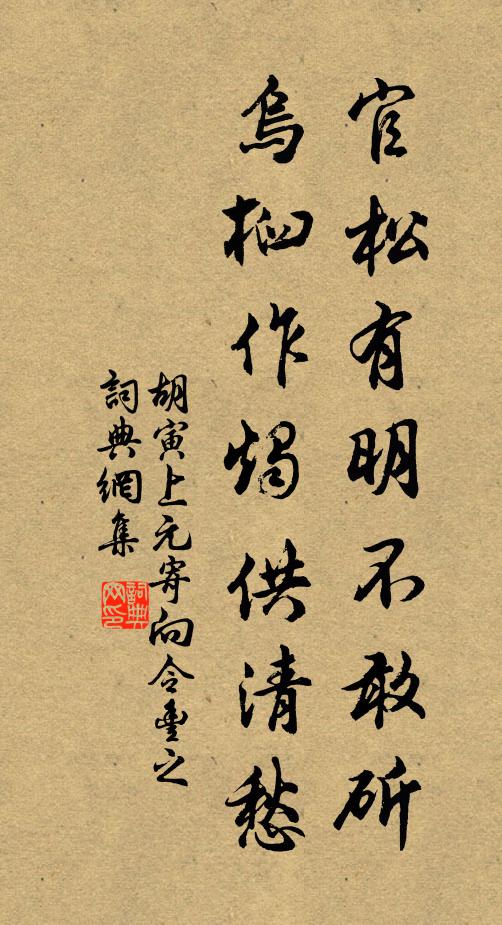 官松有明不敢斫
烏桕作燭供清愁
胡寅上元寄向令豐之
詞典網集
詞典网印